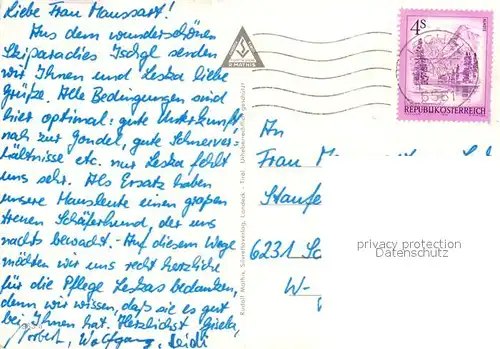 Liebe Frau Maussart!
Aus dem wunderschönen
Skiparadies Ischgl senden
wir Ihnen und Leska liebe
Grüße. Alle Bedingungen sind
hier optimal: gute Unterkunft,
nah zur Gondel, gute Schneever-
hältnisse etc. nur Leska fehlt
uns sehr. Als Ersatz haben
unsere Hausleute einen großen
treuen Schäferhund, der uns
nachts bewacht. - Auf diesem Wege
möchten wir uns recht herzliche
für die Pflege Leskas bedanken,
denn wir wissen, daß sie es gut
bei Ihnen hat. Herzlichst Gisela,
Norbert, Wolfgang, Heidi
R. MATHIS
Rudolf Mathis, Silvrettaverlag, Landeck - Tirol Urheberrechtlich geschützt
4S
REPUBLIK ÖSTERREICH
6561
An
Frau
Staufe
6231
W-
privacy protection
Datenschutz